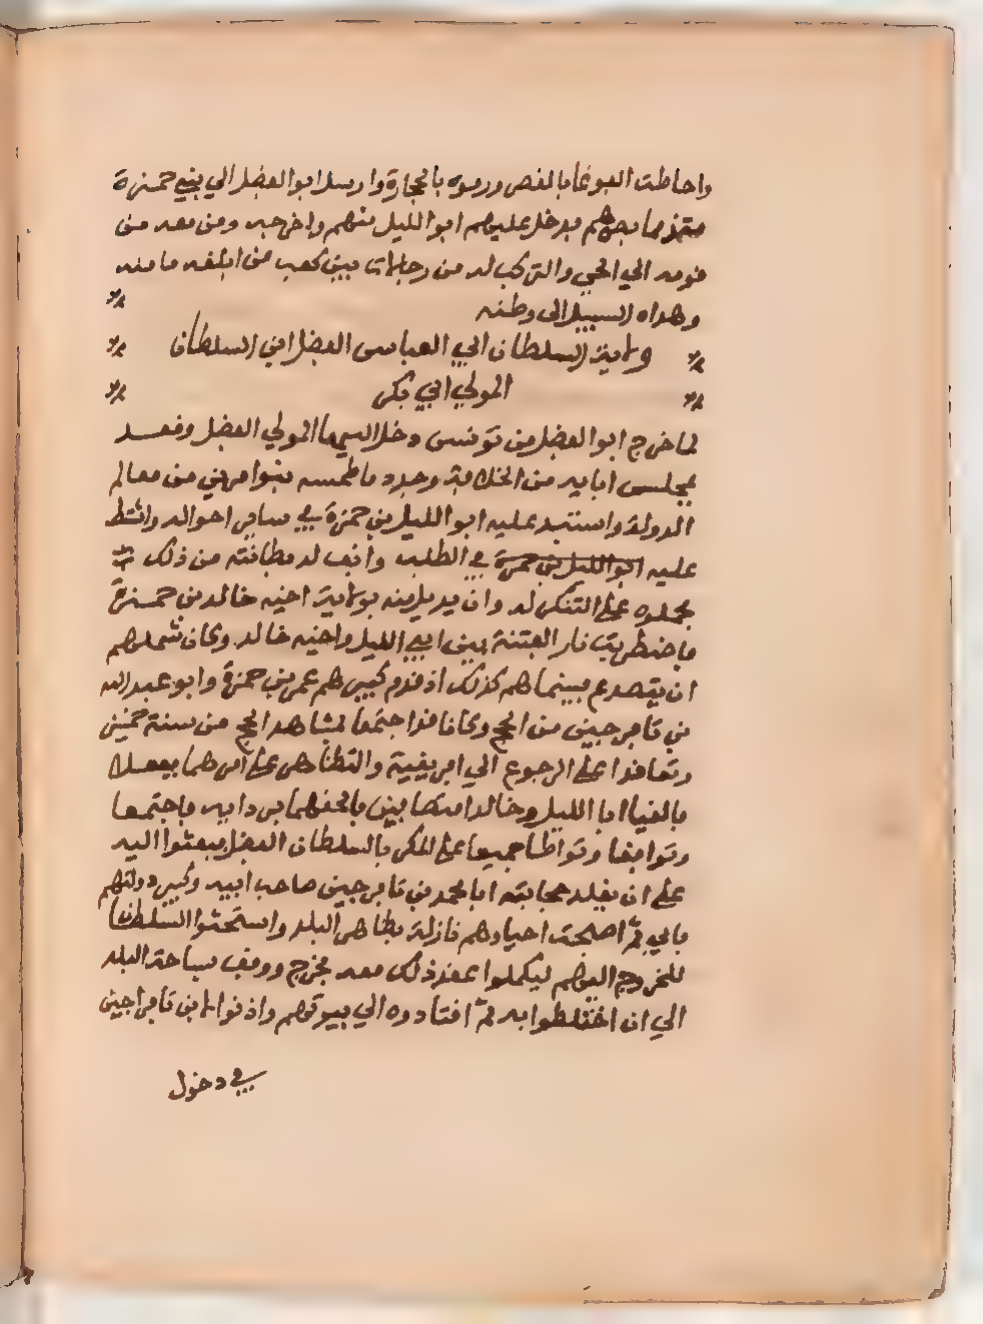 واحاطت الغوغا بالقصر ورموه بالحجارة وارسل ابو الفضل الي بني حمزة
متذمما بهم فدخل عليهم ابو الليل منهم واخرجه ومن معه من
قومه الي الحي والتركب له من رجالات بني كعب من ابلغه مامنه
وهداه السبيل الى وطنه
ولاية السلطان ابي العباس الفضل ابن السلطان
المولي ابي بكر
لما خرج ابو الفضل من تونس دخل اليها المولي الفضل وقعد
بمجلس ابايه من الخلافة وجدد ما طمسه بنوا مرين من معالم
الدولة واستبد عليه ابو الليل بن حمزة في ساير احواله واشتط
عليه ابو الليل بن حمزة في الطلب وانف له بطانته من ذلك
فحملوه على التنكر له وان يديل منه بولاية اخيه خالد بن حمزة
فاضطربت نار الفتنة بين ابي الليل واخيه خالد وكان شملهم
ان يتصدع فبينما هم كذلك اذ قدم كبيرهم عمر بن حمزة وابو عبد الله
بن تافرجين من الحج وكانا قد اجتمعا بمشاهد الحج من سنة خمسين
وتعاقدا على الرجوع الي افريقية والتظاهر على امرهما بقفلا
فالفيا ابا الليل وخالدا متصافين فالحفهما برداىه فاجتمعا
وتوافقا وتواطا جميعا على المكر بالسلطان الفضل فبعثوا اليه
على ان يقلد حجابته ابا محمد بن تافرجين صاحب ابيه وكبير دولتهم
فابي ثم اصبحت احياوهم نازلة بظاهر البلد واستحثوا السلطان
للخروج اليهم ليكملوا عقد ذلك معه فخرج ووقف بساحة البلد
الي ان اختلطوا به ثم اقتادوه الي بيوتهم واذنوا لابن تافراجين
في دخول